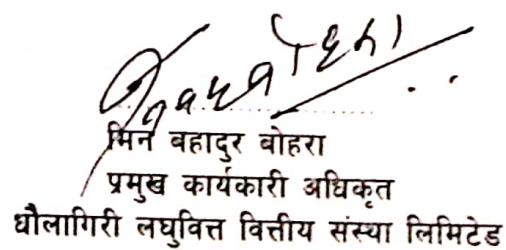 मिन बहादुर बोहरा
प्रमुख कार्यकारी अधिकृत
धौलागिरी लघुवित्त वित्तीय संस्था लिमिटेड